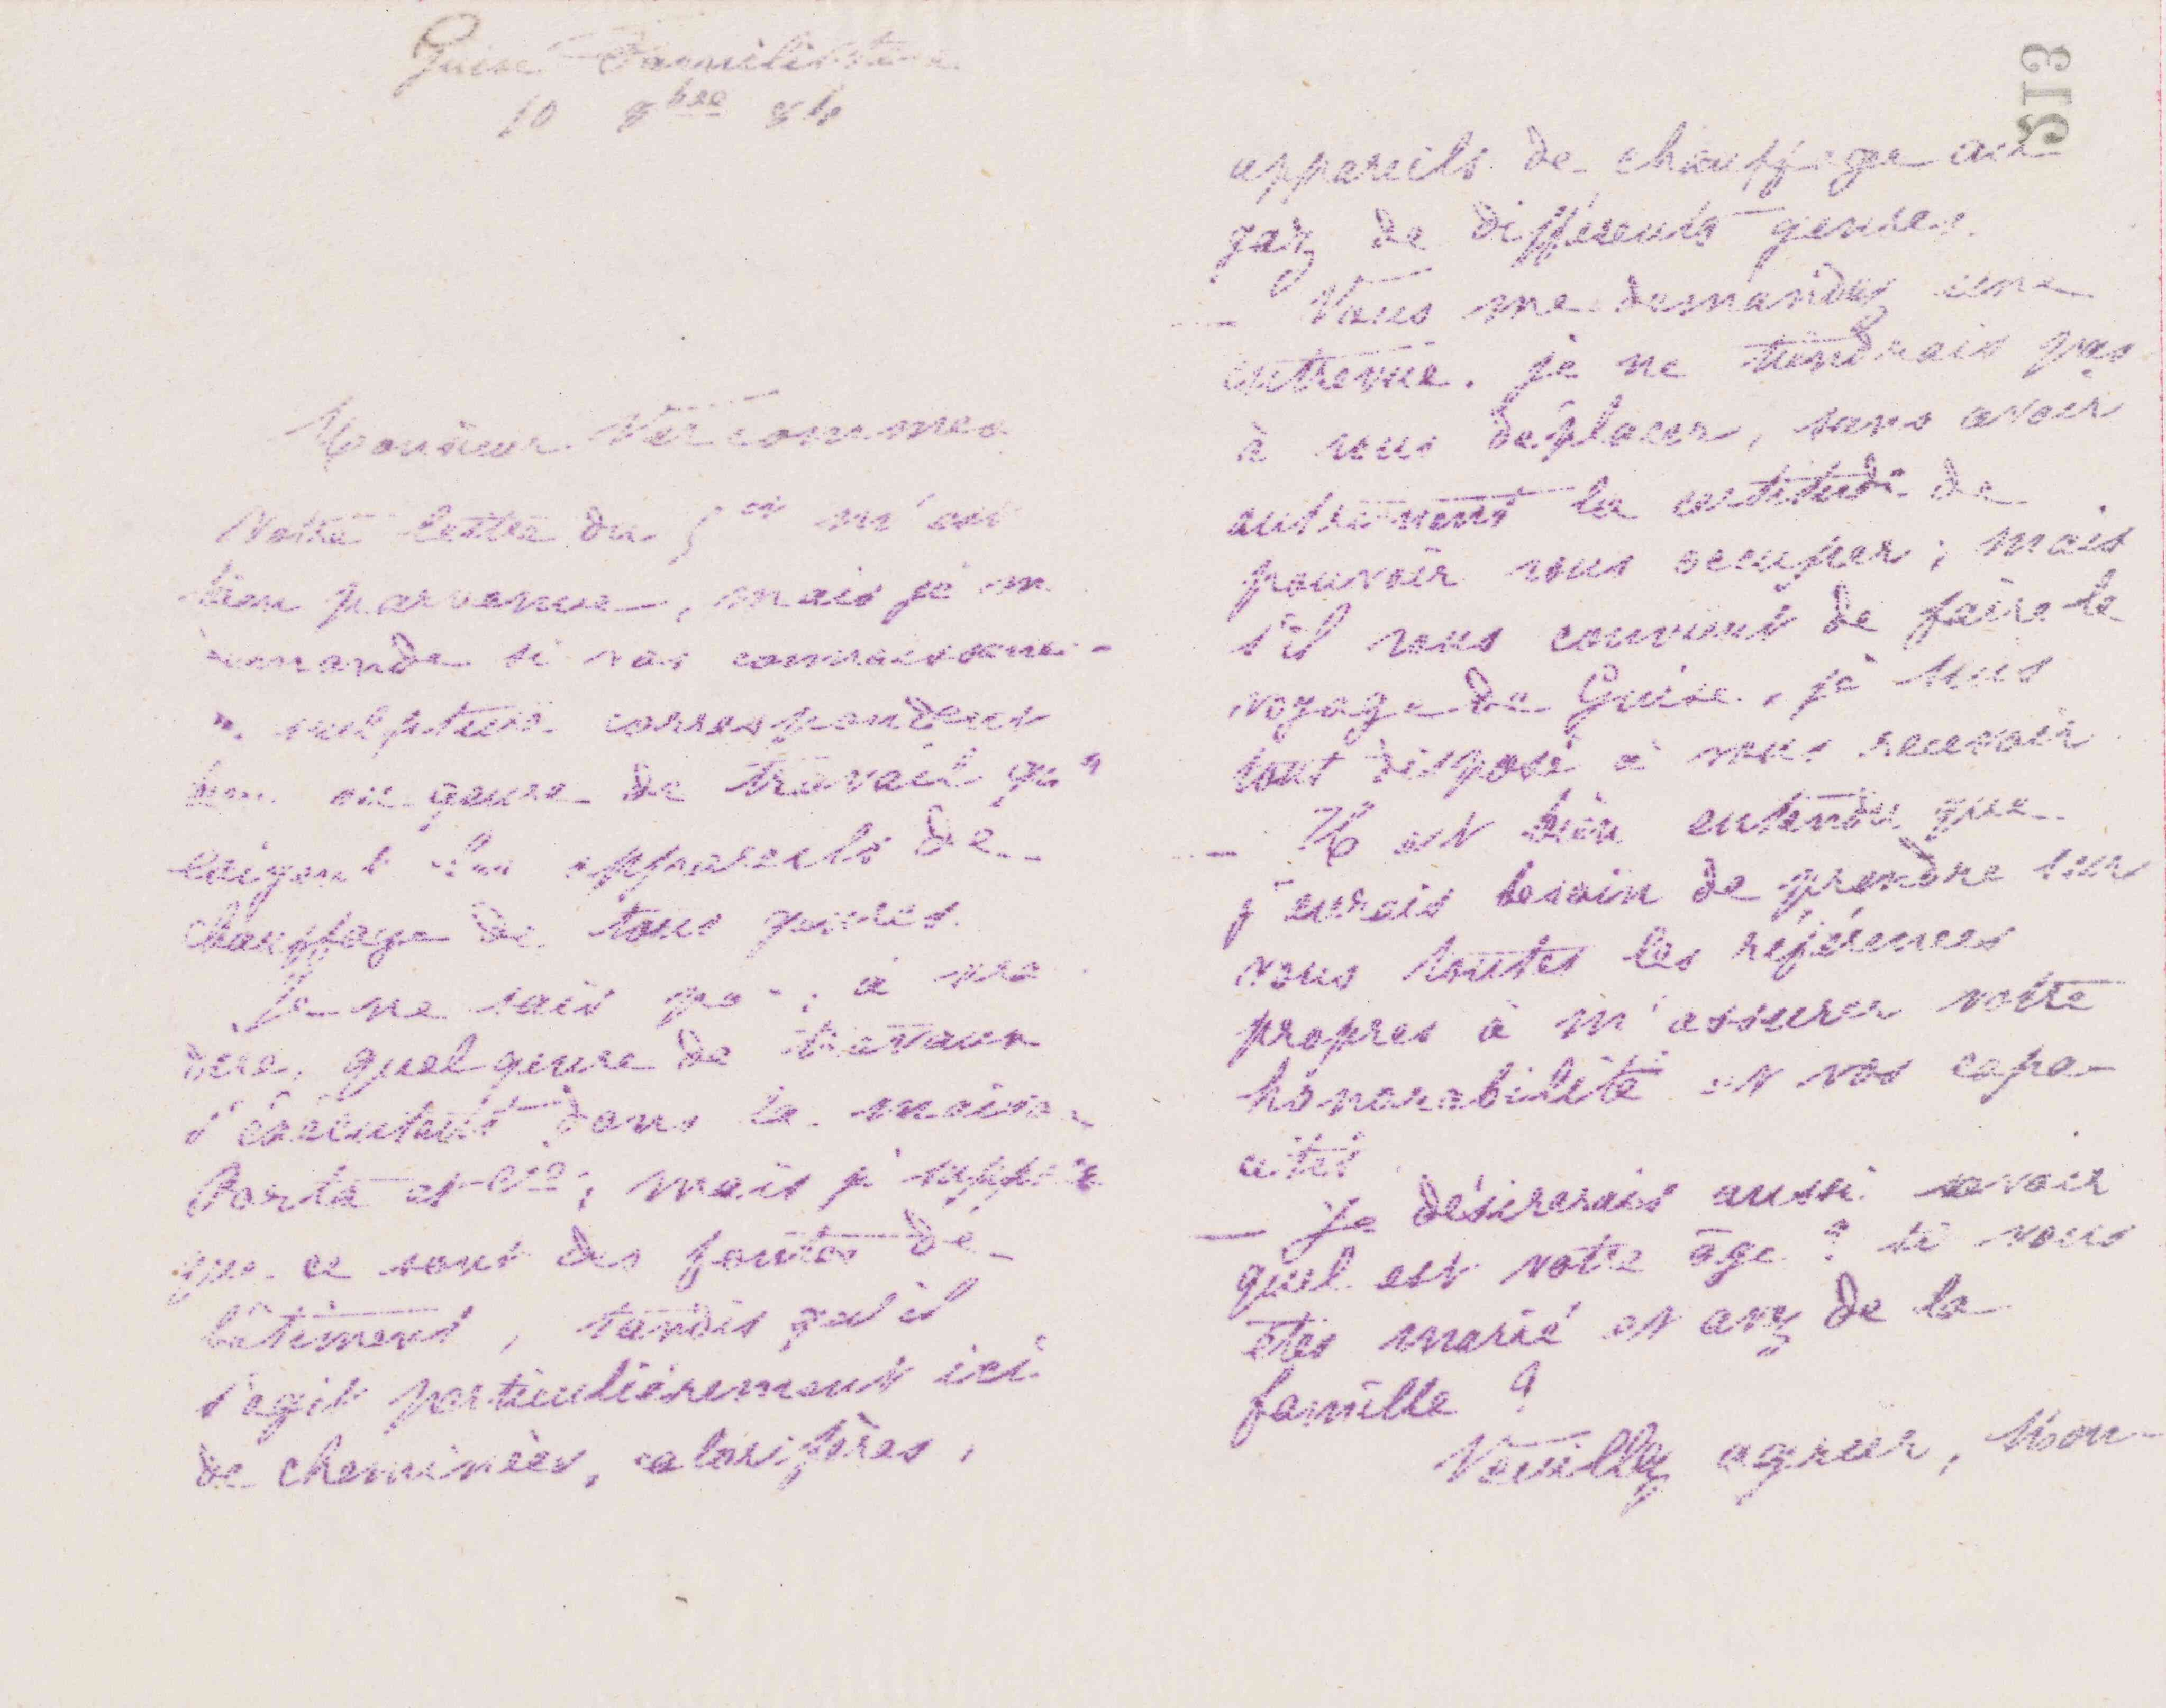 Guise Familistère
10 8bre 84
Monsieur Vercommen
Votre lettre du 5 ct m'est
bien parvenue, mais je m
demande si vos connaissances
sculpture correspondent
bien au genre de travail qu'
exigent les appareils de
chauffage de tous genres.
Je ne sais pas, à vrai
dire, quel genre de travaux
s'exécutent dans la maison
et Cie; mais je suppose
que ce sont des fontes de
bâtiment, tandis qu'il
s'agit particulièrement ici
de cheminées, calorifères,
513
appareils de chauffage au
gaz de différents genres.
— Vous me demandez une
entrevue. je ne tiendrais pas
à vous déplacer, sans avoir
autrement la certitude de
pouvoir vous occuper; mais
s'il vous convient de faire le
voyage de Guise, je suis
tout disposé à vous recevoir
— Il est bien entendu que
j'aurais besoin de prendre sur
vous toutes les références
propres à m'assurer votre
honorabilité et vos capa-
cités
— Je désirerais aussi savoir
quel est votre âge? si vous
êtes marié et avez de la
famille?
Veuillez agréer, Mon-